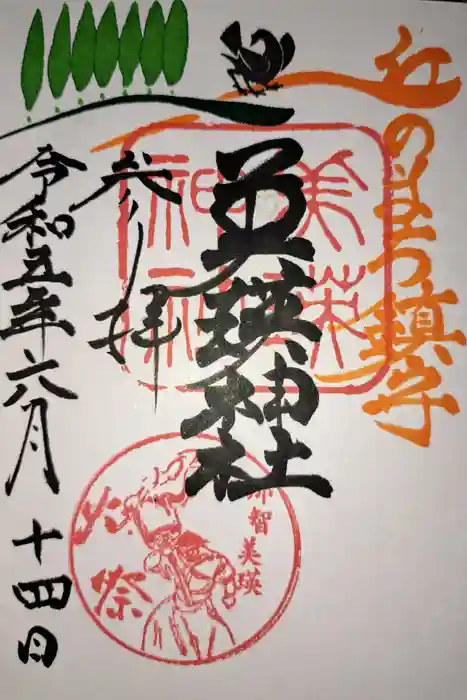 丘のまち鎮守
美瑛神社
美瑛
神社
参拝
令和五年六月十四日
那智美瑛
火祭